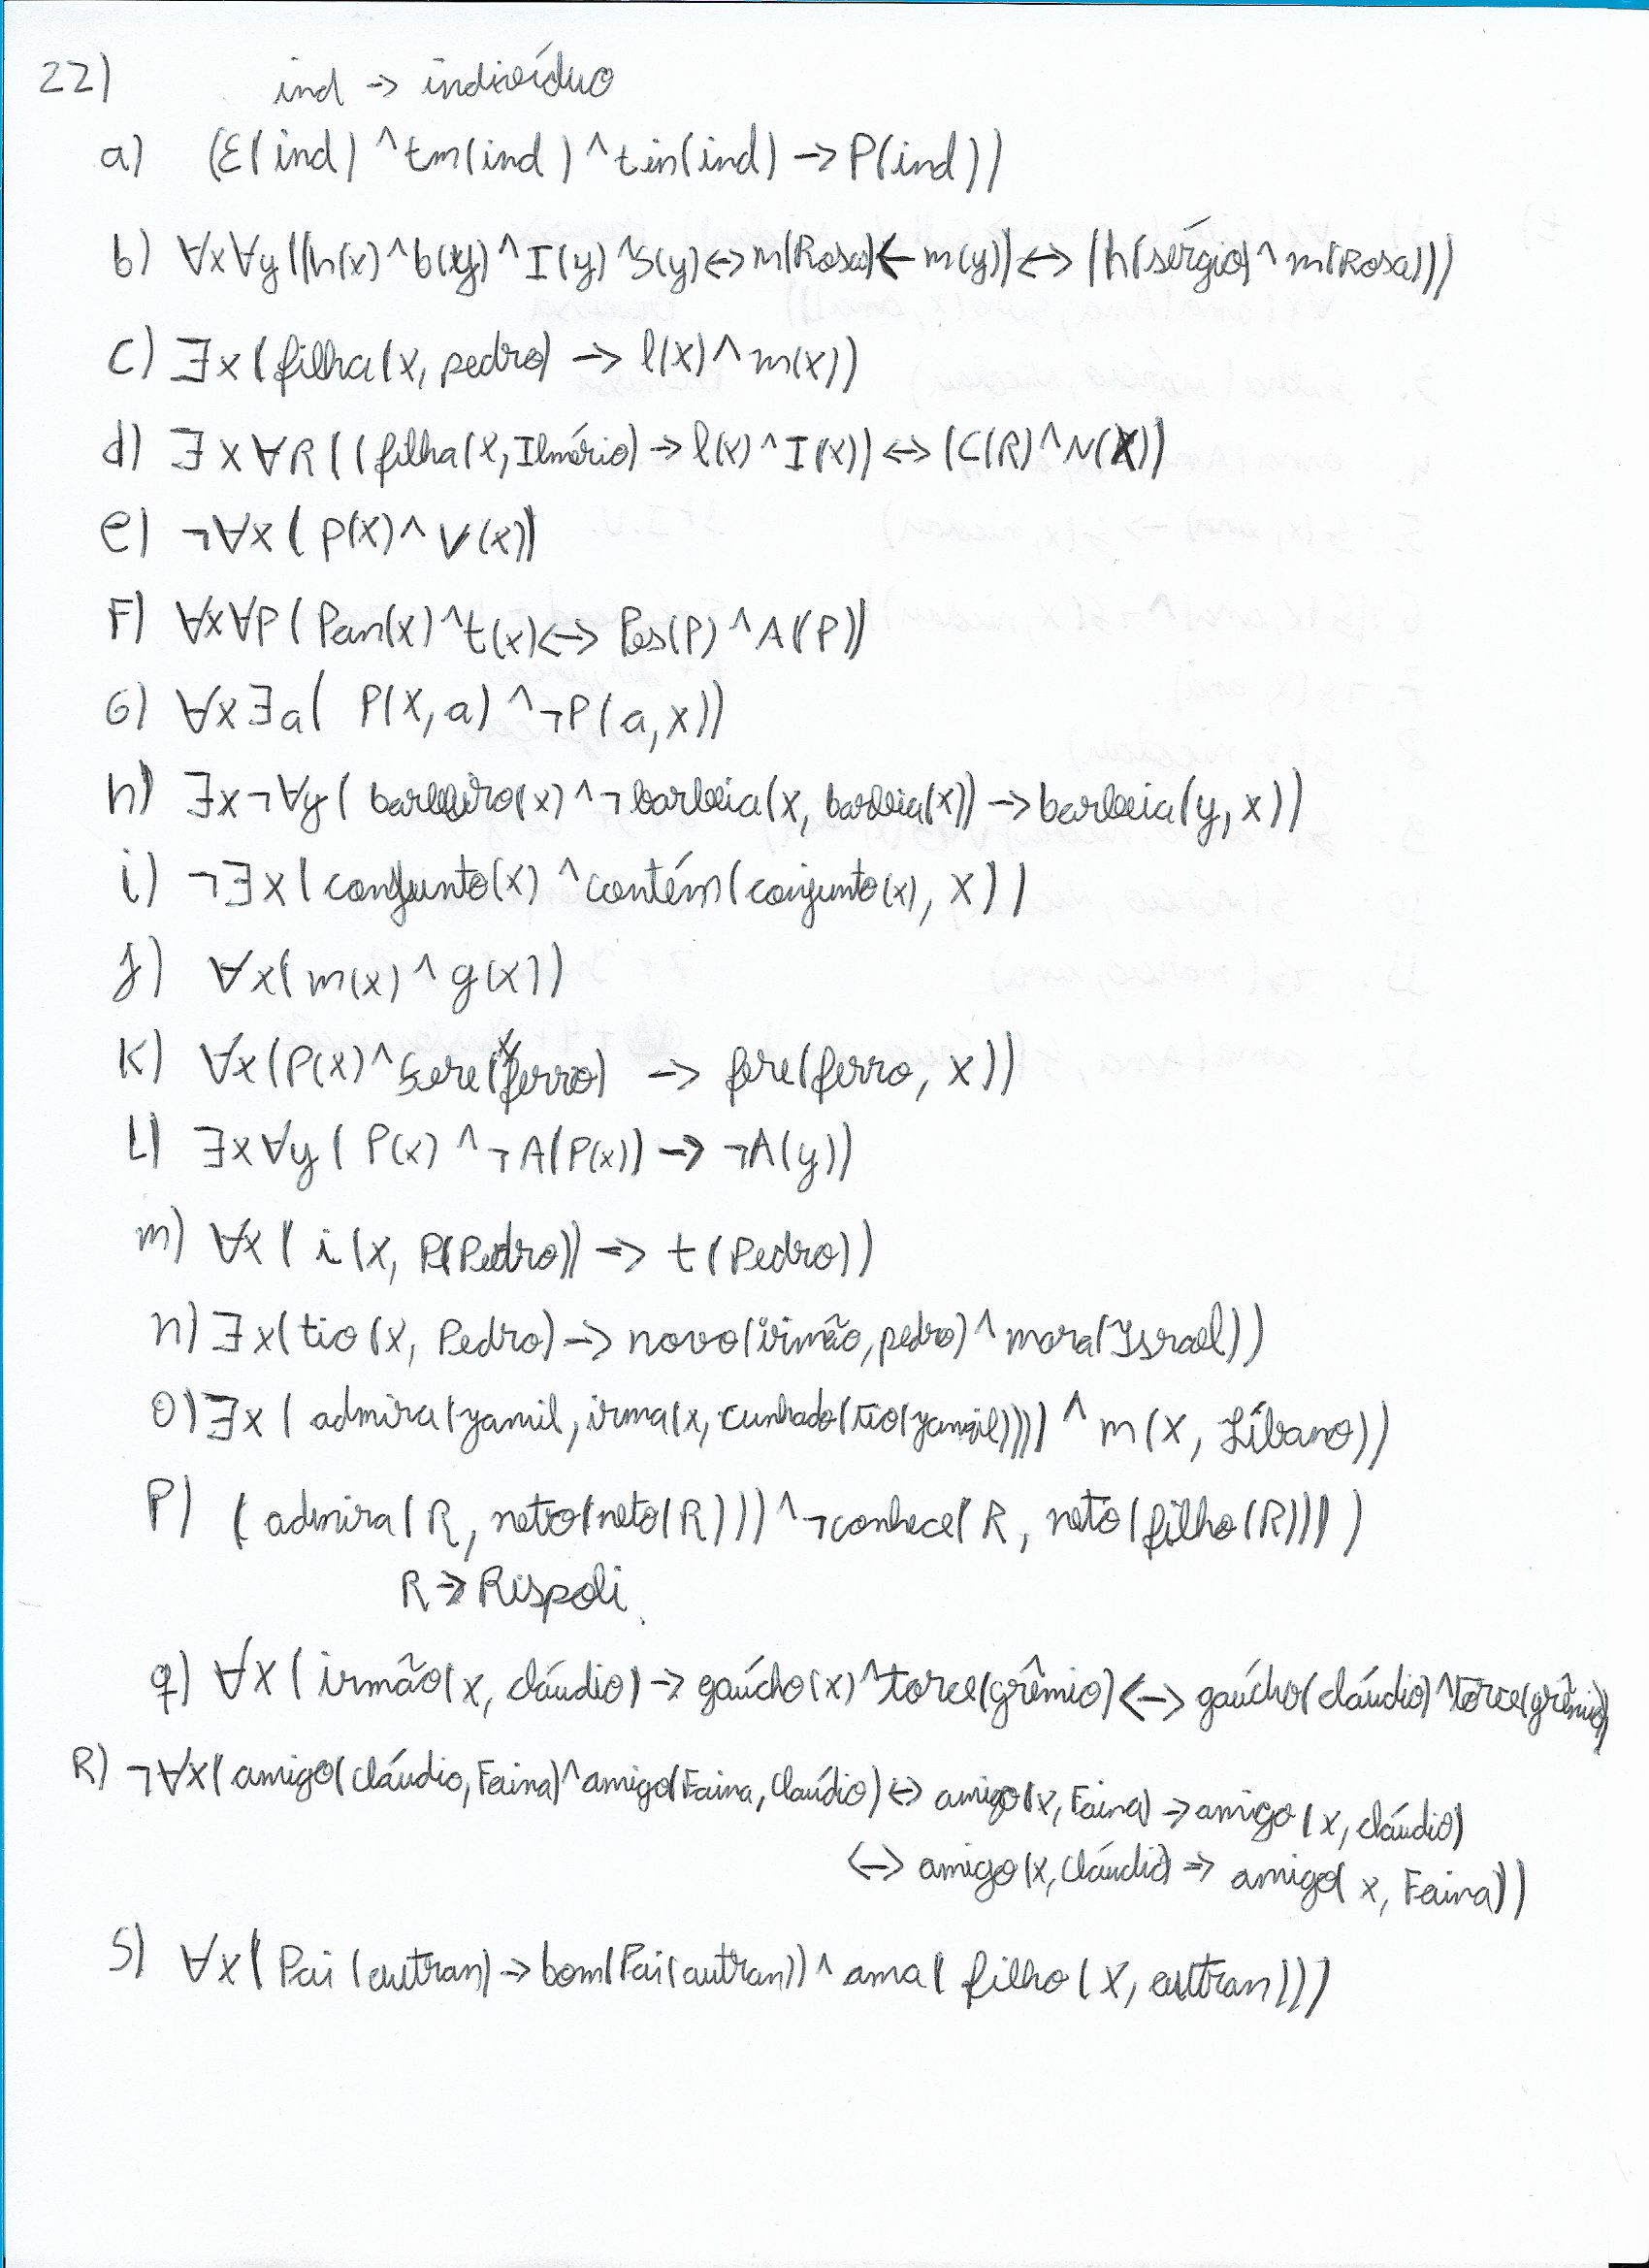 22) ind -> indivíduo
a) (E(ind) ^ tm(ind) ^ tin(ind) -> P(ind))
b) ∀x∀y((h(x) ^ b(y) ^ I(y) ^ S(y) <-> m(Rosa) <- m(y)) <-> (h(sérgio) ^ m(Rosa)))
c) ∃x(filha(x, pedro) -> l(x) ^ m(x))
d) ∃x∀R((filha(x, Ilmério) -> l(x) ^ I(x)) <-> (C(R) ^ N(X))
e) ¬∀x(P(x) ^ V(x))
F) ∀x∀P(Pan(x) ^ t(x) <-> Pes(P) ^ A(P))
G) ∀x∃a( P(x, a) ^ ¬P(a, x))
h) ∃x¬∀y( barbeiro(x) ^ ¬barbeia(x, barbeia(x)) -> barbeia(y, x))
i) ¬∃x(conjunto(x) ^ contém(conjunto(x), x))
j) ∀x(m(x) ^ g(x))
K) ∀x(P(x) ^ fere(x ferro) -> fere(ferro, x))
L) ∃x∀y( P(x) ^ ¬A(P(x)) -> ¬A(y))
m) ∀x( i(x, P(Pedro)) -> t(Pedro))
n) ∃x(tio(x, Pedro) -> novo(irmão, pedro) ^ mora(Israel))
O) ∃x( admira(yamil, irma(x, cunhado(tio(yamil)))) ^ m(x, Líbano))
P) (admira(R, neto(neto(R))) ^ ¬conhece(R, neto(filho(R))))
R -> Rispoli
q) ∀x( irmão(x, cláudio) -> gaúcho(x) ^ torce(grêmio) <-> gaúcho(cláudio) ^ torce(grêmio))
R) ¬∀x(amigo(cláudio, Faina) ^ amigo(Faina, Claúdio) <-> amigo(x, Faina) -> amigo(x, cláudio)
<-> amigo(x, Cláudio) -> amigo(x, Faina))
S) ∀x(Pai(autran) -> bom(Pai(autran)) ^ ama( filho(x, autran)))